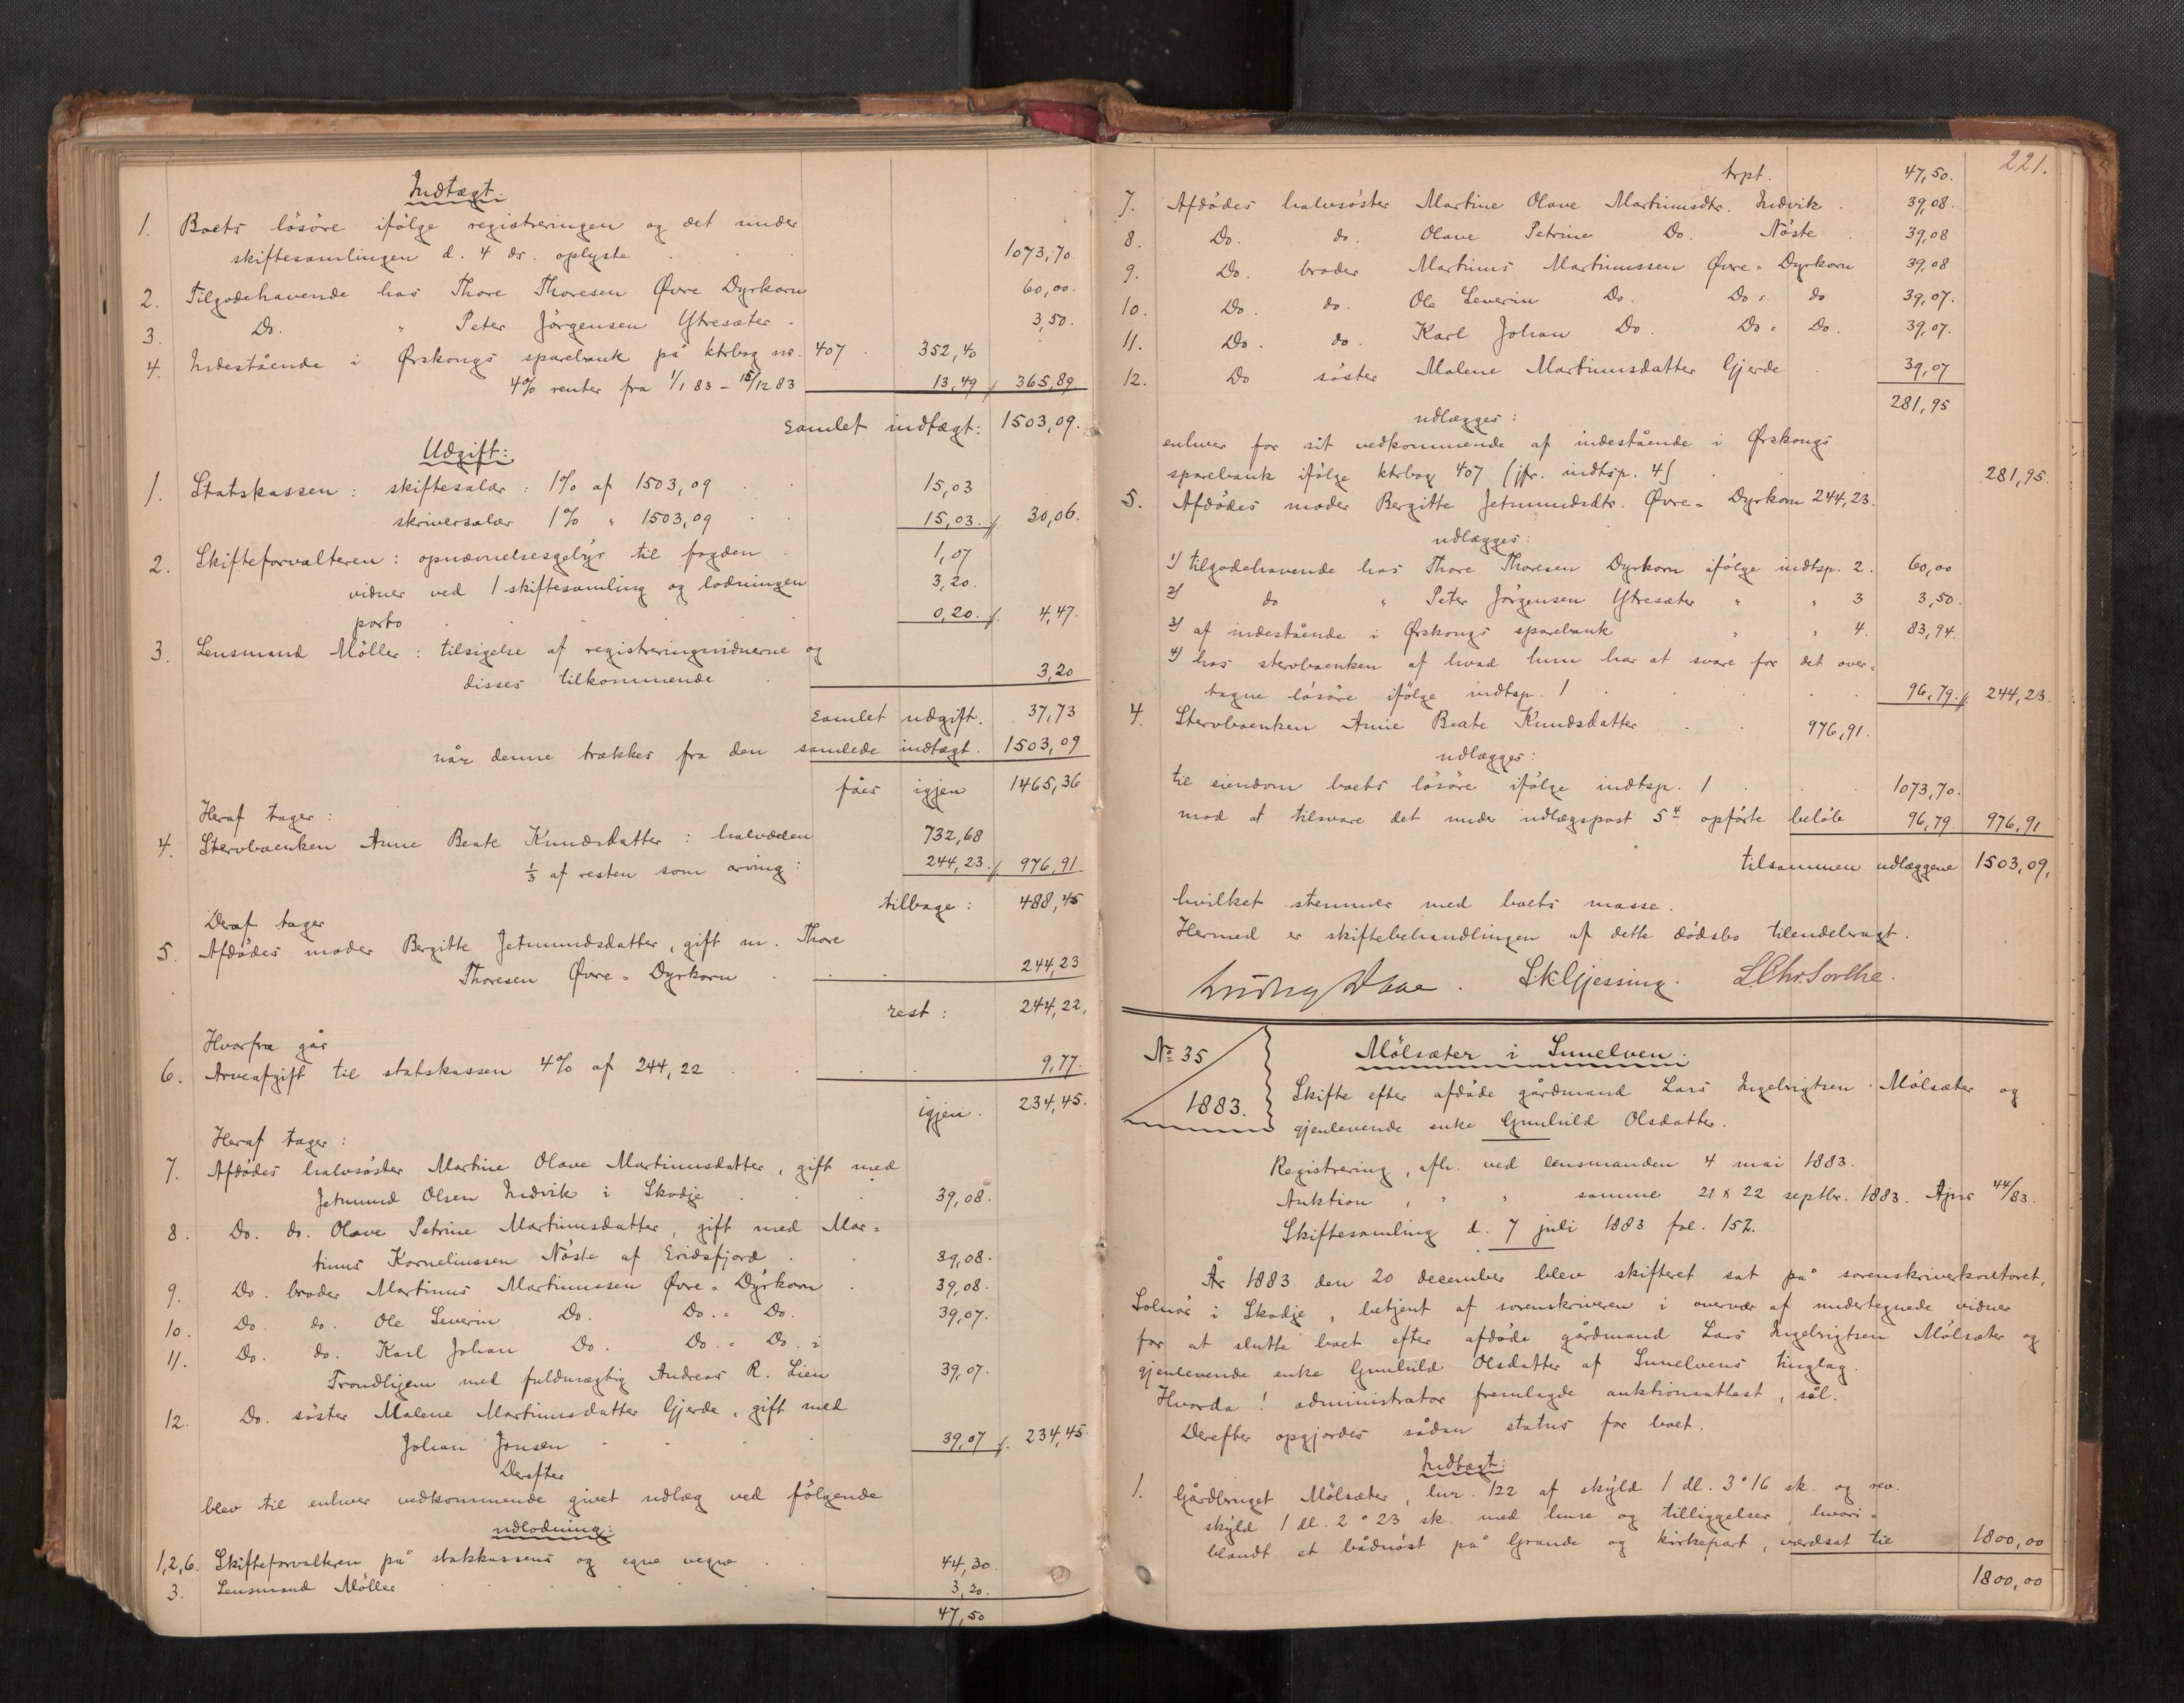 Indtægt:
1. Boets lösöre ifölge registreringen og det under
skiftesamlingen d. 4 ds. oplyste 1073,70.
2. Tilgodehavende hos Thore Thoresen Øvre Dyrkorn 60,00.
3. Do. " Peter Jörgensen Ytresæter 3,50.
4. Indestående i Ørskougs sparebank på ktrbog nr. 407 352,40
4% renter fra 1/1 83 – 15/12 83 13,49 /. 365,89
Samlet indtægt: 1503,09.
Udgift:
1. Statskassen: skiftesalær: 1% af 1503,09 15,03
skriversalær 1% " 1503,09 15,03. /. 30,06.
2. Skifteforvalteren: opnævnelsesgebyr til fogden 1,07
vidner ved 1 skiftesamling og lodningen 3,20.
porto 0,20. /. 4,47.
3. Lensmand Möller: tilsigelse af registreringsvidnerne og
disses tilkommende 3,20
Samlet udgift. 37,73
når denne trækkes fra den samlede indtægt. 1503,09
fåes igjen 1465,36
Heraf tager:
4. Stervboenken Anne Beate Knudsdatter: halvdelen 732,68
1/3 af resten som arving: 244,23. /. 976,91
tilbage: 488,45
Deraf tager
5. Afdödes moder Bergitte Jetmundsdatter, gift m. Thore
Thoresen Øvre-Dyrkorn 244,23
rest: 244,22.
Hvorfra går
6. Arveafgift til statskassen 4% af 244,22 9,77.
igjen. 234,45.
Heraf tager:
7. Afdödes halvsöster Martine Olave Martinusdatter, gift med
Jetmund Olsen Indvik i Skodje 39,08.
8. Do. do. Olave Petrine Martinusdatter, gift med Mar-
tinus Korneliussen Nöste af Eridsfjord 39,08.
9. Do. broder Martinus Martinussen Øvre-Dyrkorn 39,08.
10. Do. do. Ole Severin Do. Do.- Do. 39,07.
11. Do. do. Karl Johan Do. Do.- Do. i
Trondhjem med fuldmægtig Andreas R. Lien 39,07.
12. Do. söster Malene Martinusdatter Gjerde, gift med
Johan Jonsen 39,07 /. 234,45.
Derefter
blev til enhver vedkommende givet udlæg ved fölgende
udlodning:
1,2,6. Skifteforvalteren på statskassens og egne vegne 44,30
3. Lensmand Möller 3,20.
47,50
221.
trpt. 47,50.
7. Afdödes halvsöster Martine Olave Martinusdtr. Indvik 39,08.
8. Do. do. Olave Petrine Do. Nöste 39,08
9. Do. broder Martinus Martinussen Øvre-Dyrkorn 39,08
10. Do. do. Ole Severin Do. Do - do 39,07.
11. Do. do. Karl Johan Do. Do - Do. 39,07.
12. Do söster Malene Martinusdatter Gjerde 39,07
281,95
udlægges:
enhver for sit vedkommende af indestående i Ørskougs
sparebank ifölge ktrbog 407 (jfr. indtsp. 4) 281,95.
5. Afdödes moder Bergitte Jetmundsdtr. Øvre-Dyrkorn 244,23.
udlægges:
1) tilgodehavende hos Thore Thoresen Dyrkorn ifölge indtsp. 2. 60,00
2) do " Peter Jörgensen Ytresæter " " 3 3,50.
3) af indestående i Ørskougs sparebank " " 4. 83,94.
4) hos stervboenken af hvad hun har at svare for det over-
tagne lösöre ifölge indtsp. 1 96,79. /. 244,23.
4. Stervboenken Anne Beate Knudsdatter 976,91.
udlægges:
til eiendom boets lösöre ifölge indtsp. 1 1073,70.
mod at tilsvare det under udlægspost 5 4 opförte belöb 96,79. 976,91
tilsammen udlæggene 1503,09.
hvilket stemmer med boets masse.
Hermed er skiftebehandlingen af dette dödsbo tilendebragt.
Ludvig Daae. S.K. Gjessing. L. Chr. Sorthe.
No 35
1883.
Mölsæter i Sunelven.
Skifte efter afdöde gårdmand Lars Ingebrigtsen Mölsæter og
gjenlevende enke Gunhild Olsdatter.
Registrering, afh. ved lensmanden 4 mai 1883.
Auktion, " " samme 21 & 22 septbr. 1883. Ajnr 44/83.
Skiftesamling d. 7 juli 1883 fol. 157.
År 1883 den 20 december blev skifteret sat på sorenskriverkontoret,
Solnör i Skodje, betjent af sorenskriveren i overvær af undertegnede vidner
for at slutte boet efter afdöde gårdmand Lars Ingebrigtsen Mölsæter og
gjenlevende enke Gunhild Olsdatter af Sunelvens tinglag.
Hvorda! administrator fremlagde auktionsattest, sål.
Derefter opgjordes sådan status for boet.
Indtægt:
1. Gårdbruget Mölsæter, lnr. 122 af skyld 1 dl. 3 ° 16 sk. og rev.
skyld 1 dl. 2 ° 23 sk. med huse og tilliggelser, hvori-
blandt et bådnöst på Grande og kirkepart, værdsat til 1800,00
1800,00